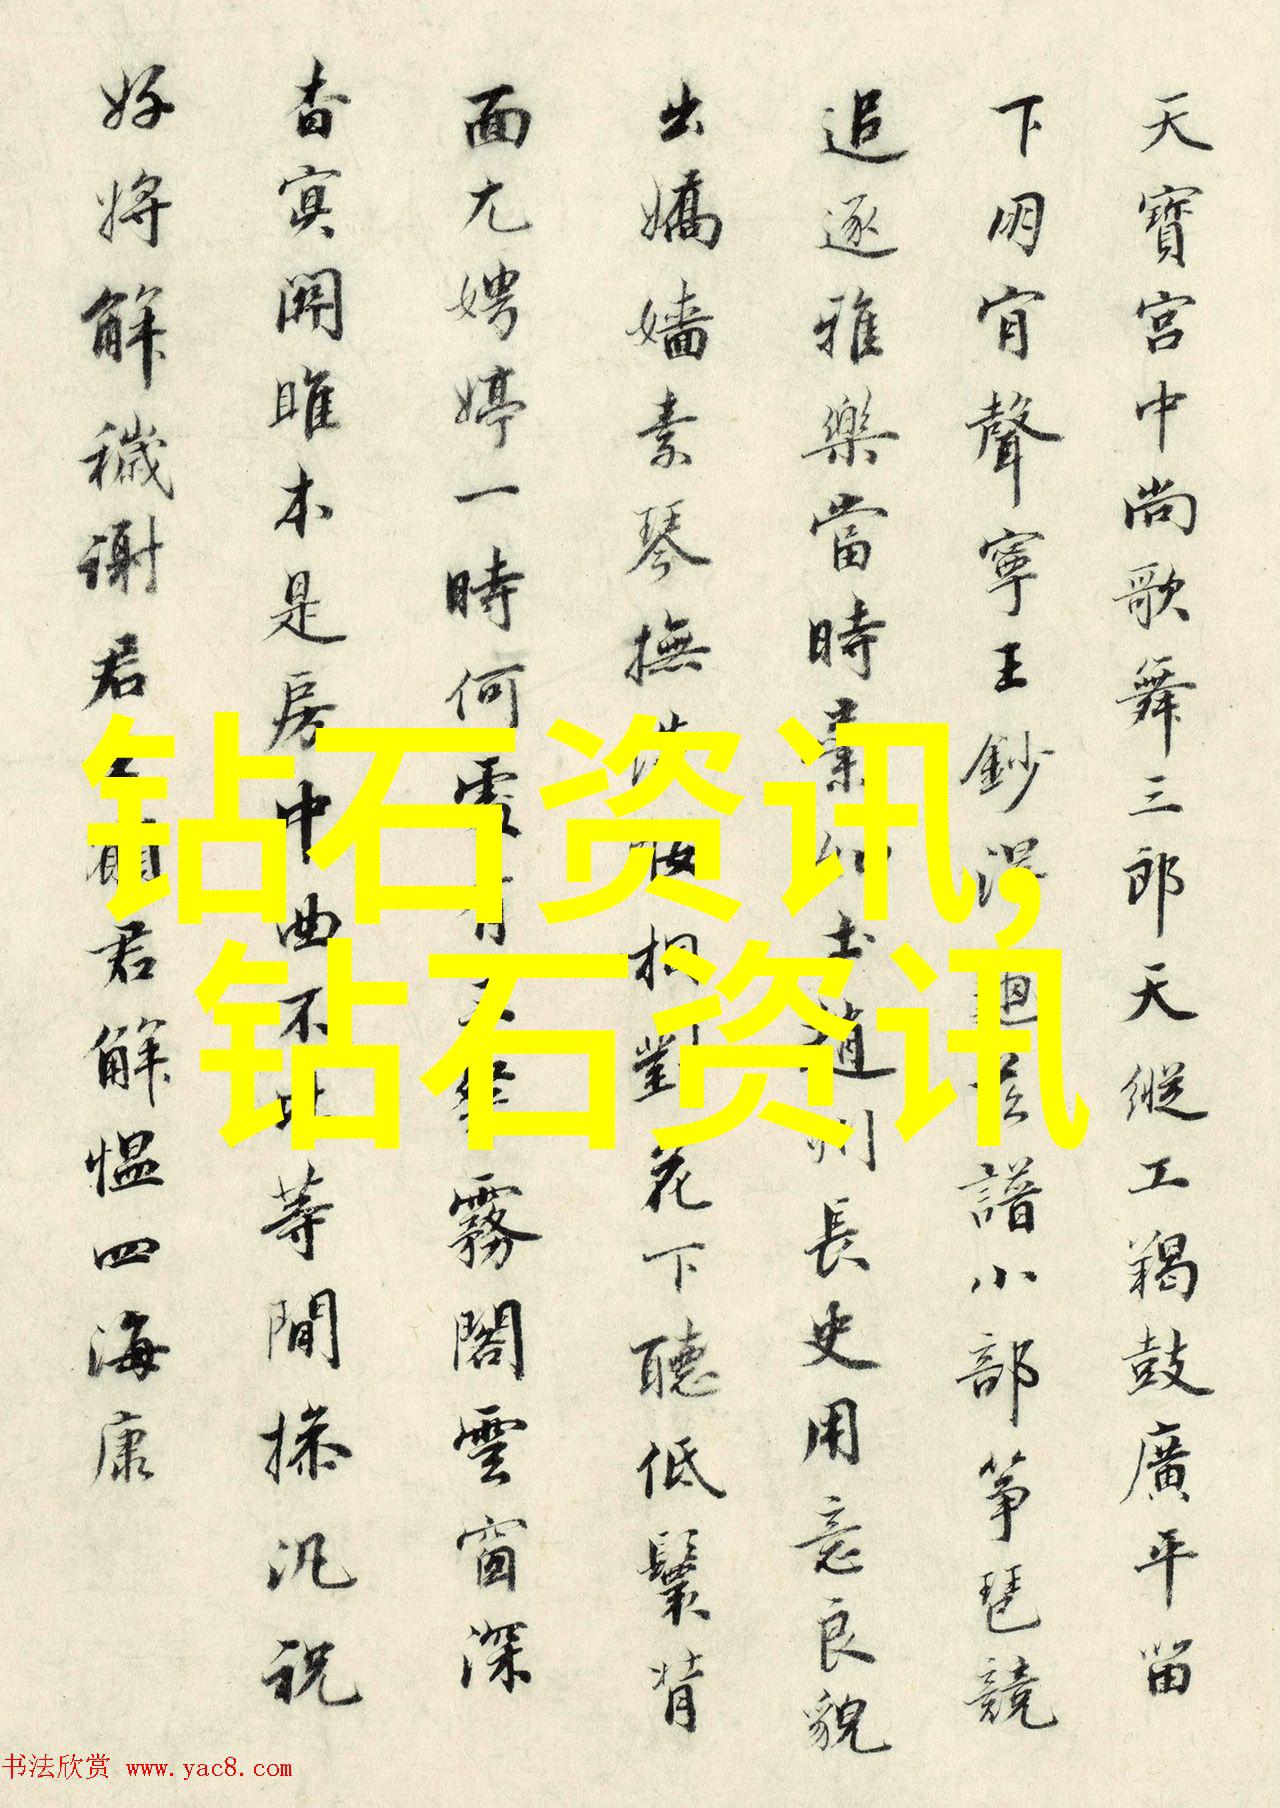 天寶宮中尚歌舞三郎天縱工羯鼓廣平當
下明宵聲寧王鈔譜小部筝琶競
追逐雅樂當時長史用意良貌
出嬌嬙素琴撫相對花下聽低鬟背
面尤娉婷一時何霧閣雲窗深
杳寞開睢本是房中曲不等間操汎祝
好將解穢謝君君解慍四海康
钻石资讯,
钻石资讯
书法欣赏 www.yac8.com